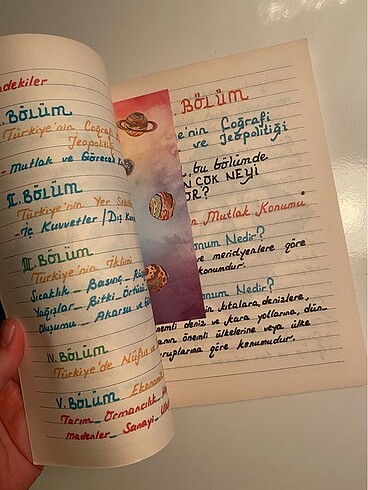 dekiler
. BÖLÜM
Türkiye'nin Coğrafi
Jeopolitiği
- Mutlak ve Göreceli
II. BÖLÜM
Türkiye'nin Yer
-İç Kuvvetler / Dış
III. BÖLÜM
Türkiye'nin İklimi
Sıcaklık - Basınç -
Yağışlar - Bitki - Örtüsü
Oluşumu - Akarsu ve
IV. BÖLÜM
Türkiye'de Nüfus ve
V. BÖLÜM Ekonomi
Tarım - Ormancılık -
madenler - Sanayi -
BÖLÜM
e'nin Coğrafi
ve Jeopolitiği
, bu bölümde
N ÇOK NEYİ
OR?
n Mutlak Konumu
onum Nedir?
ve meridyenlere göre
konumdur.
onum Nedir?
nin kıtalara, denizlere,
nemli deniz ve kara yollarına, dün-
anın önemli ülkelerine veya ülke
ruplarına göre konumudur.